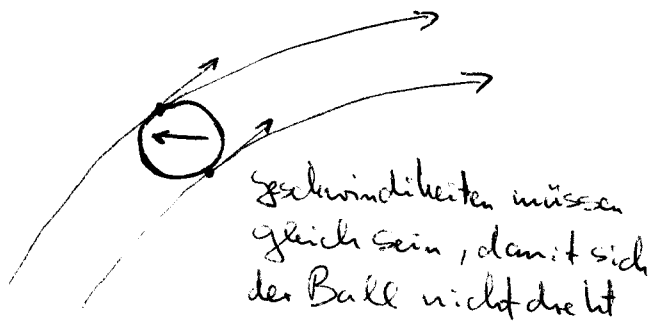 geschwindikeiten müssen
gleich sein, damit sich
der Ball nicht dreht